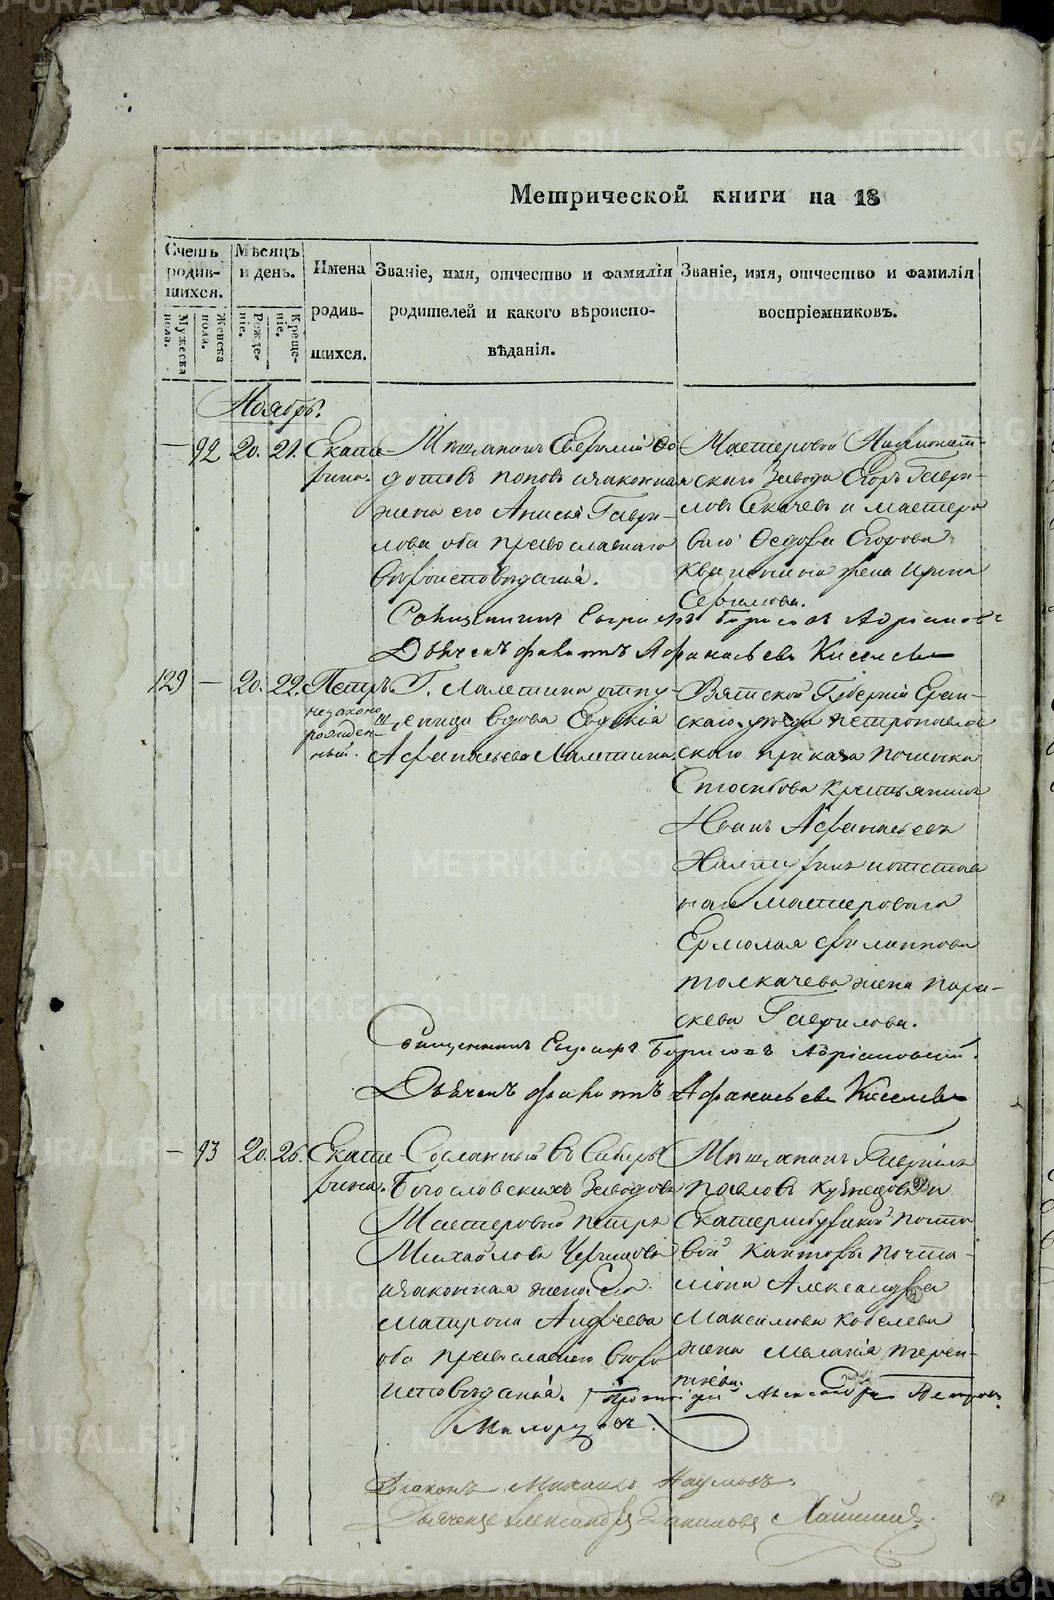 Метрической книги на 18
Счетъ родив-шихся.
Мужеска пола.
Женска пола.
Мѣсяцъ и день.
Рожде-ніе.
Креще-ніе.
Имена родив-шихся.
Званіе, имя, отчество и фамилія
родителей и какого вѣроиспо-
вѣданія.
Званіе, имя, отчество и фамилія
воспріемниковъ.
Ноябрь.
— 92 20. 21. Екате-
рина.
Мѣщанинъ Ефимій Ѳе-
дотовъ Поповъ изаконная
жена его Анисія Гаври-
лова оба православнаго
вѣроисповѣданія.
Мастеровой
скаго завода Егоръ Гаври-
ловъ и мастеро
ваго Ѳедора Егорова
жена Ирина
Ефимова.
Священникъ Борисовъ
Дьячекъ Афанасьевъ Киселевъ
129 — 20. 22. Петръ.
незаконо
рожден-
ный.
Г. Лалетина отпу-
щеница вдова Евдокія
Афанасьева Лалетина.
Вятской Губерніи Еран-
скаго уѣзда Петропавлов
скаго приказа починка
крестьянинъ
Иванъ Афанасьевъ
и отстав
наго мастероваго
Ермолая Филиппова
Толкачева жена Пара-
скева Гаврилова.
Священникъ Борисовъ
Дьячекъ Афанасьевъ Киселевъ
— 93 20. 26. Екате-
рина.
Сосланный въ Сибирь
Богословскихъ Заводовъ
Мастеровой Петръ
Михайловъ
изаконная жена его
Матрона Андреева
оба православнаго вѣро
исповѣданія.
Мѣщанинъ Гавріилъ
Павловъ Кузнецовъ и
Екатеринбургской почто
вой Конторы почта-
ліона Александра
Максимова Кобелева
жена Меланія Терен-
тьева.
Протоіерей Александръ Петровъ
Милорадовъ.
Діаконъ Михаилъ Наумовъ.
Дьячекъ Александръ Даниловъ
METRIKI.GASO-URAL.RU